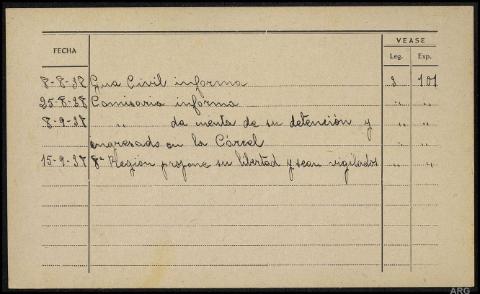 VEASE
FECHA Leg. Exp.
8-8-38 Gua Civil informa 3 101
25-8-38 Comisaria informa " "
8-9-38 " da cuenta de su detención y " "
engresado en la Cárcel
15-9-38 8ª Región propone su libertad y sean vigilados " "
ARG